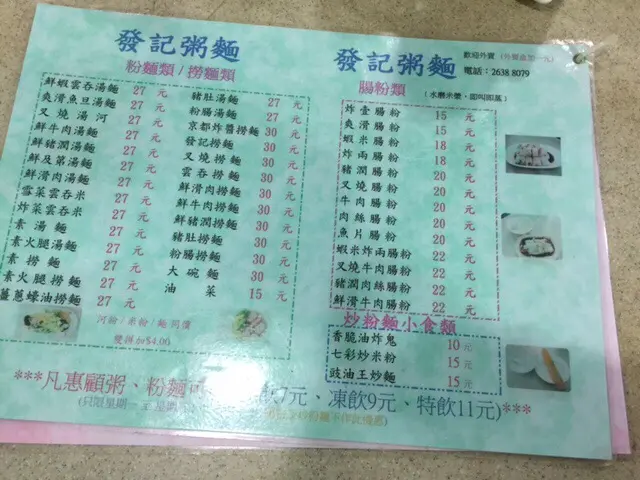 發記粥麵
粉麵類/撈麵類
鮮蝦雲吞湯麵 27 元
爽滑魚豆湯麵 27 元
叉燒湯河 27 元
鮮牛肉湯麵 27 元
鮮豬潤湯麵 27 元
鮮及第湯麵 27 元
鮮滑肉湯麵 27 元
雪菜雲吞米 27 元
炸菜雲吞米 27 元
素湯麵 27 元
素火腿湯麵 27 元
素撈麵 27 元
素火腿撈麵 27 元
薑蔥蠔油撈麵 27 元
豬肚湯麵 27 元
粉腸湯麵 27 元
京都炸醬撈麵 30 元
發記撈麵 30 元
叉燒撈麵 30 元
雲吞撈麵 30 元
鮮滑肉撈麵 30 元
鮮牛肉撈麵 30 元
鮮豬潤撈麵 30 元
豬肚撈麵 30 元
粉腸撈麵 30 元
大碗麵 30 元
油菜 15 元
河粉/米粉/麵同價
雙拼加$4.00
發記粥麵
歡迎外賣
電話:2638 8079
腸粉類
(水磨米漿,即叫即蒸)
炸壹腸粉 15 元
爽滑腸粉 15 元
蝦米腸粉 18 元
炸兩腸粉 18 元
豬潤腸粉 20 元
叉燒腸粉 20 元
牛肉腸粉 20 元
肉絲腸粉 20 元
魚片腸粉 20 元
蝦米炸兩腸粉 22 元
叉燒牛肉腸粉 22 元
豬潤肉絲腸粉 22 元
鮮滑牛肉腸粉 22 元
炒粉麵小食類
香脆油炸鬼 10 元
七彩炒米粉 15 元
豉油王炒麵 15 元
***凡惠顧粥、粉麵 飲7元、凍飲9元、特飲11元)***
(只限星期一至